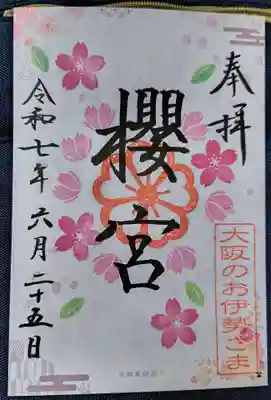 奉拝
櫻宮
令和七年六月二十五日
大阪のお伊勢さま